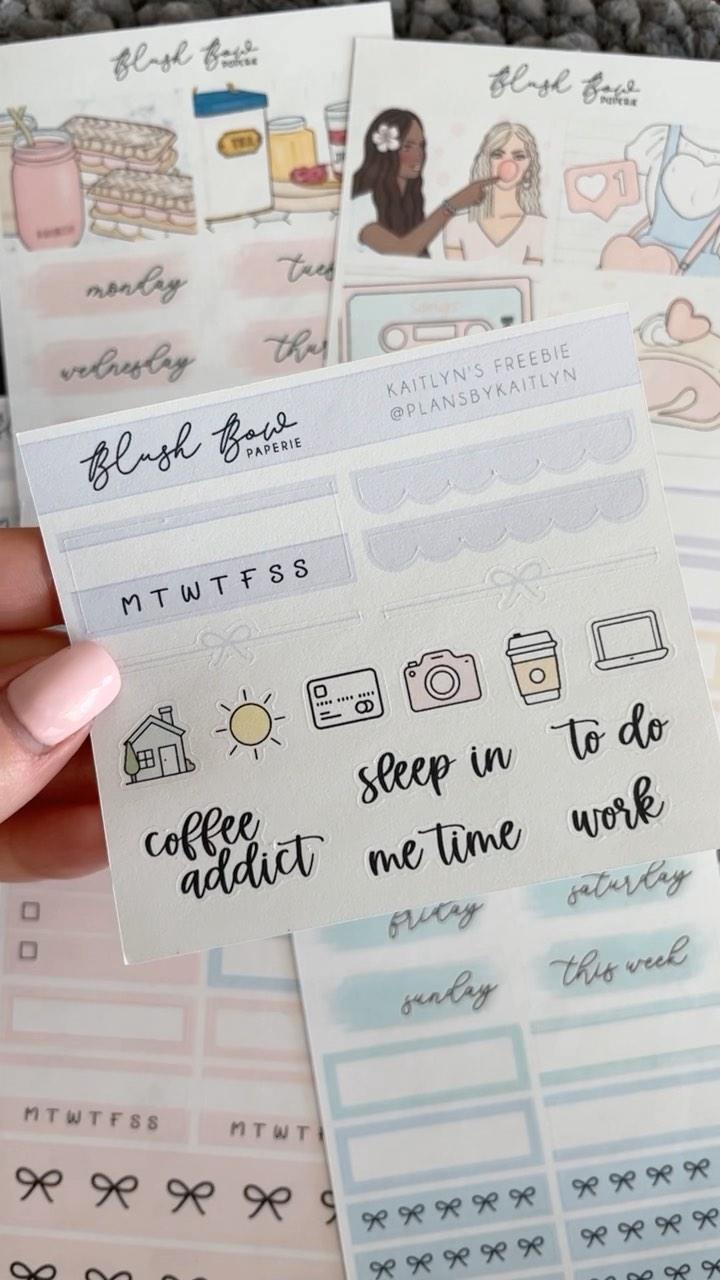 Blush Bow
PAPERIE
Blush Bow
PAPERIE
TEA
1
monday
wednesday
KAITLYN'S FREEBIE
@PLANSBYKAITLYN
Blush Bow
PAPERIE
M T W T F S S
sleep in
to do
coffee
addict
me time
work
friday
saturday
sunday
this week
M T W T F S S
M T W T